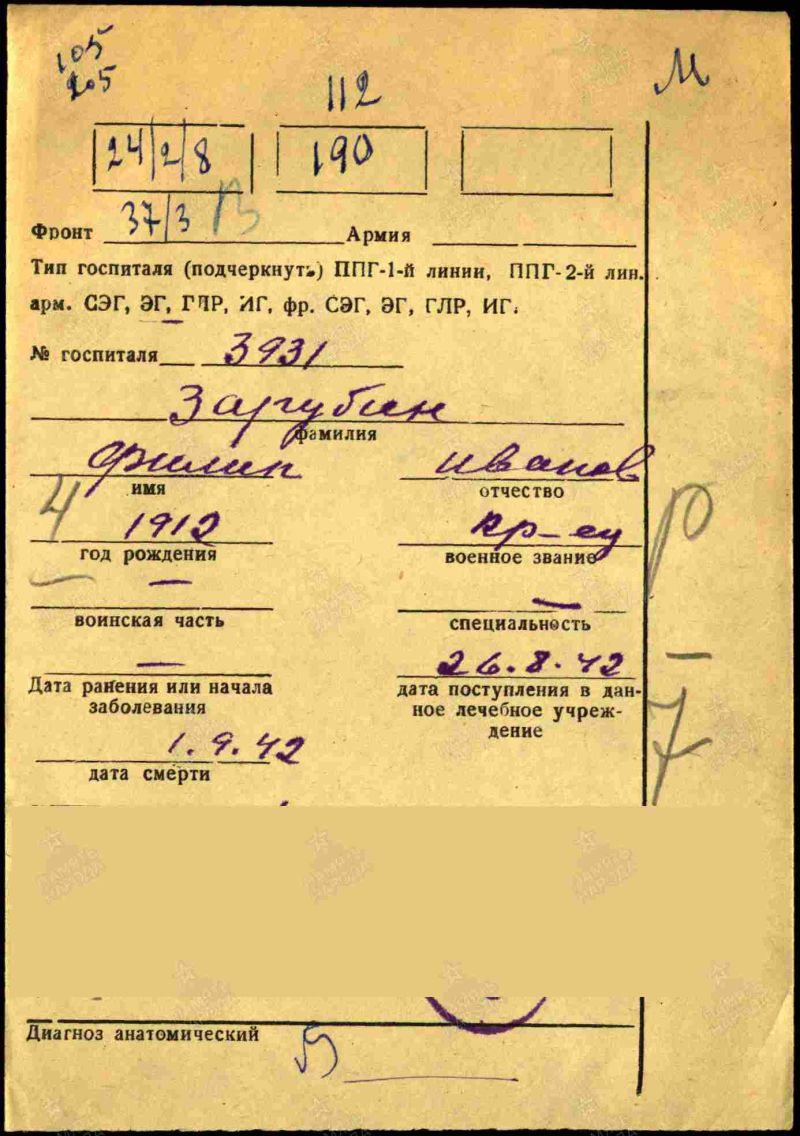 105
205
112
М
24/2/8
190
37/3 В
Фронт Армия
Тип госпиталя (подчеркнуть) ППГ-1-й линии, ППГ-2-й лин.
арм. СЭГ, ЭГ, ГЛР, ИГ, фр. СЭГ, ЭГ, ГЛР, ИГ.
№ госпиталя 3931
Зарубин
фамилия
Филип Иванов
имя отчество
4 1912 кр-ец
год рождения военное звание
— —
воинская часть специальность
— 26.8.42
Дата ранения или начала дата поступления в дан-
заболевания ное лечебное учреж-
дение
1.9.42
дата смерти
Диагноз анатомический